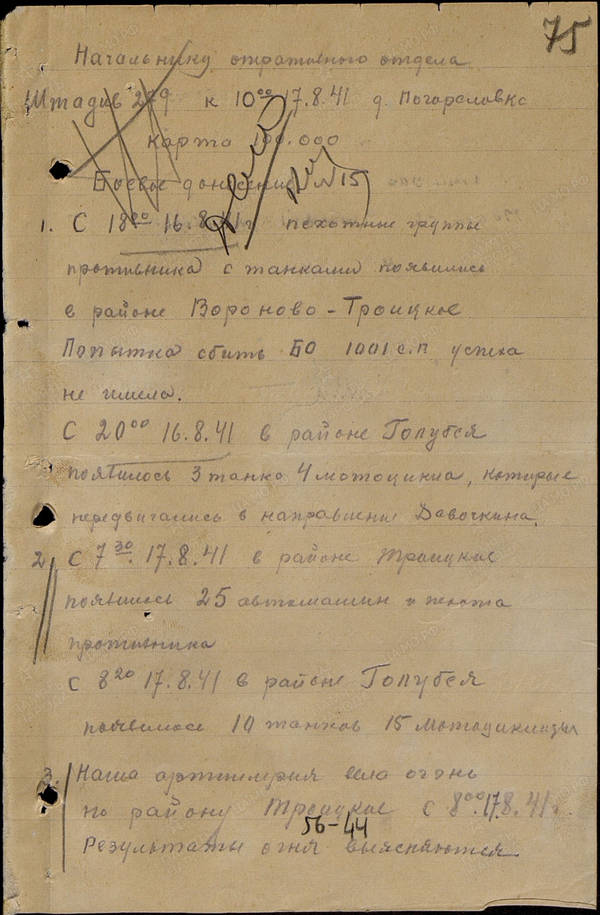 75
Начальнику опративного отдела
Штадив 279 к 10⁰⁰ 17.8.41 д. Погореловка
карта 100.000
Боевое донесение №15
1. С 18⁰⁰ 16.8.41г пехотные группы
противника с танками появились
в районе Вороново-Троицкое
Попытка сбить БО 1001 с.п успеха
не имела.
С 20⁰⁰ 16.8.41 в районе Голубея
появилось 3 танка 4 мотоцикла, которые
передвигались в направление Девочкина.
2 С 7³⁰. 17.8.41 в районе Троицкое
появилось 25 автомашин и пехота
противника
с 8²⁰ 17.8.41 в районе Голубея
появилось 10 танков 15 мотоцикл
3. Наша артиллерия вела огонь
по району Троицкое с 8⁰⁰.17.8.41г.
56-44
Результаты огня выясняются